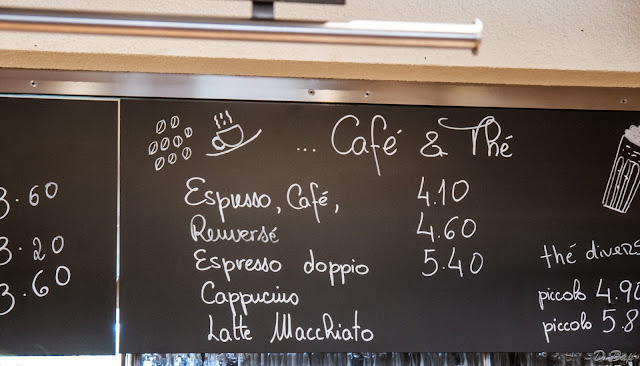 ... Café & Thé
Espresso, Café, 4.10
Renversé 4.60
Espresso doppio 5.40
Cappucino
Latte Macchiato
3.60
3.20
3.60
thé diversi
piccolo 4.90
piccoto 5.8